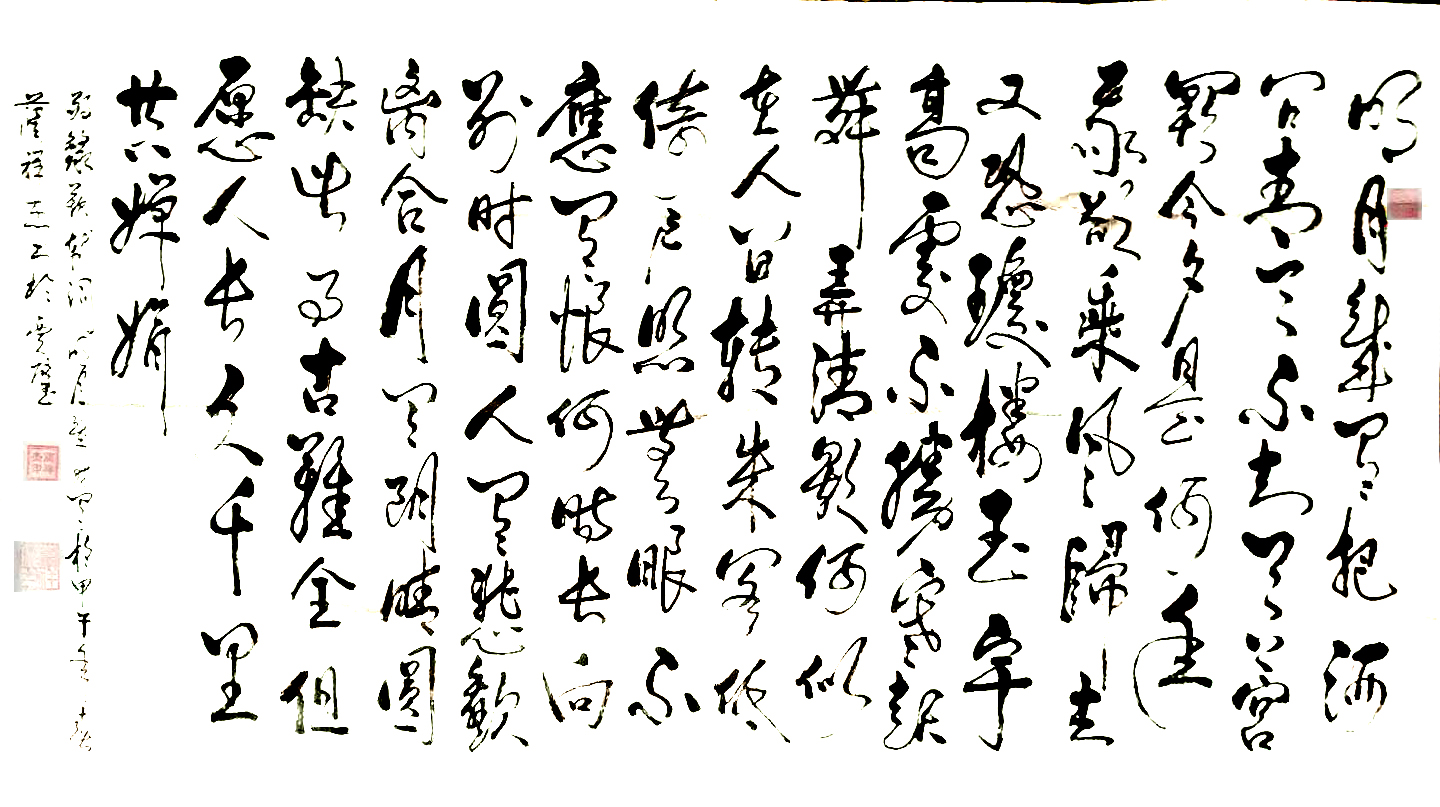 明月幾有把酒
问青天不知天上宮
闕今夕是何年
我欲乘風歸去
又恐瓊樓玉宇
高處不勝寒起
舞弄清影何似
在人间转朱阁低
倚户照無眠不
應有恨何時长向
别时圓人有悲歡
離合月有阴晴圓
缺此事古難全但
愿人长久千里
共嬋娟
錄蘇軾词明月幾时有於甲午年